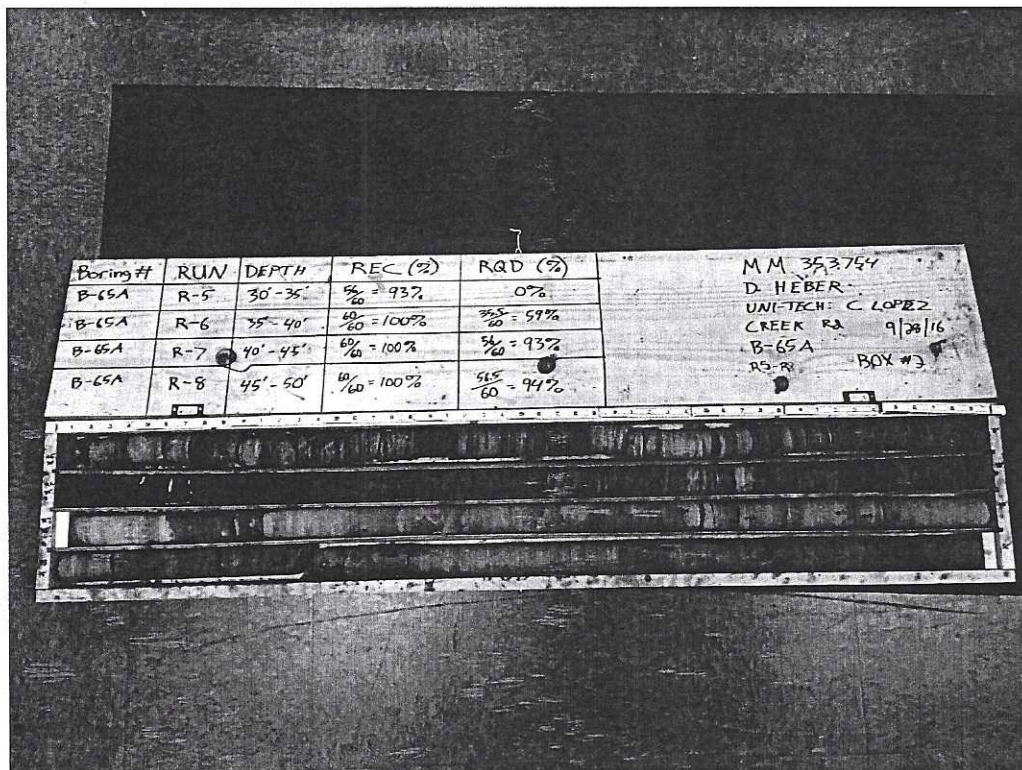 Boring # RUN DEPTH REC (%) RQD (%)
B-65A R-5 30'-35' 56/60 = 93% 0%
B-65A R-6 35'-40' 60/60 = 100% 35.5/60 = 59%
B-65A R-7 40'-45' 60/60 = 100% 56/60 = 93%
B-65A R-8 45'-50' 60/60 = 100% 56.5/60 = 94%
MM 353.754
D. HEBER
UNI-TECH: C LOPEZ
CREEK Rd 9/28/16
B-65A
R5-R8 BOX #3